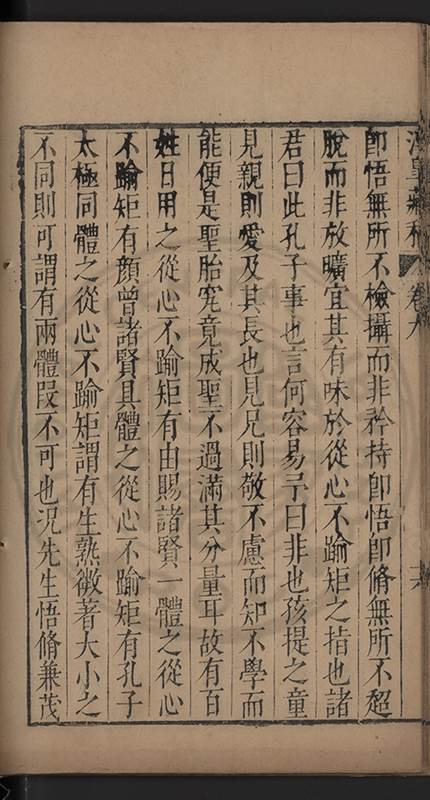 卽悟無所不檢攝而非矜持卽悟卽脩無所不超
脫而非放曠宜其有味於從心不踰矩之指也諸
君曰此孔子事也言何容易予曰非也孩提之童
見親則愛及其長也見兄則敬不慮而知不學而
能便是聖胎究竟成聖不過滿其分量耳故有百
姓日用之從心不踰矩有由賜諸賢一體之從心
不踰矩有顏曾諸賢具體之從心不踰矩有孔子
太極同體之從心不踰矩謂有生熟微著大小之
不同則可謂有兩體段不可也況先生悟脩兼茂